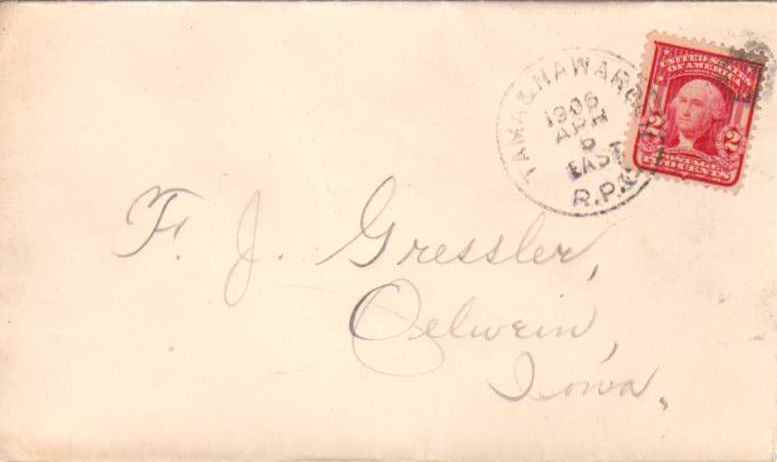 TAMA & HAWARD
1906
APR
5
EAST
R.P.O.
UNITED STATES
OF AMERICA
2 2
POSTAGE
TWO CENTS
F. J. Gressler,
Oelwein,
Iowa.